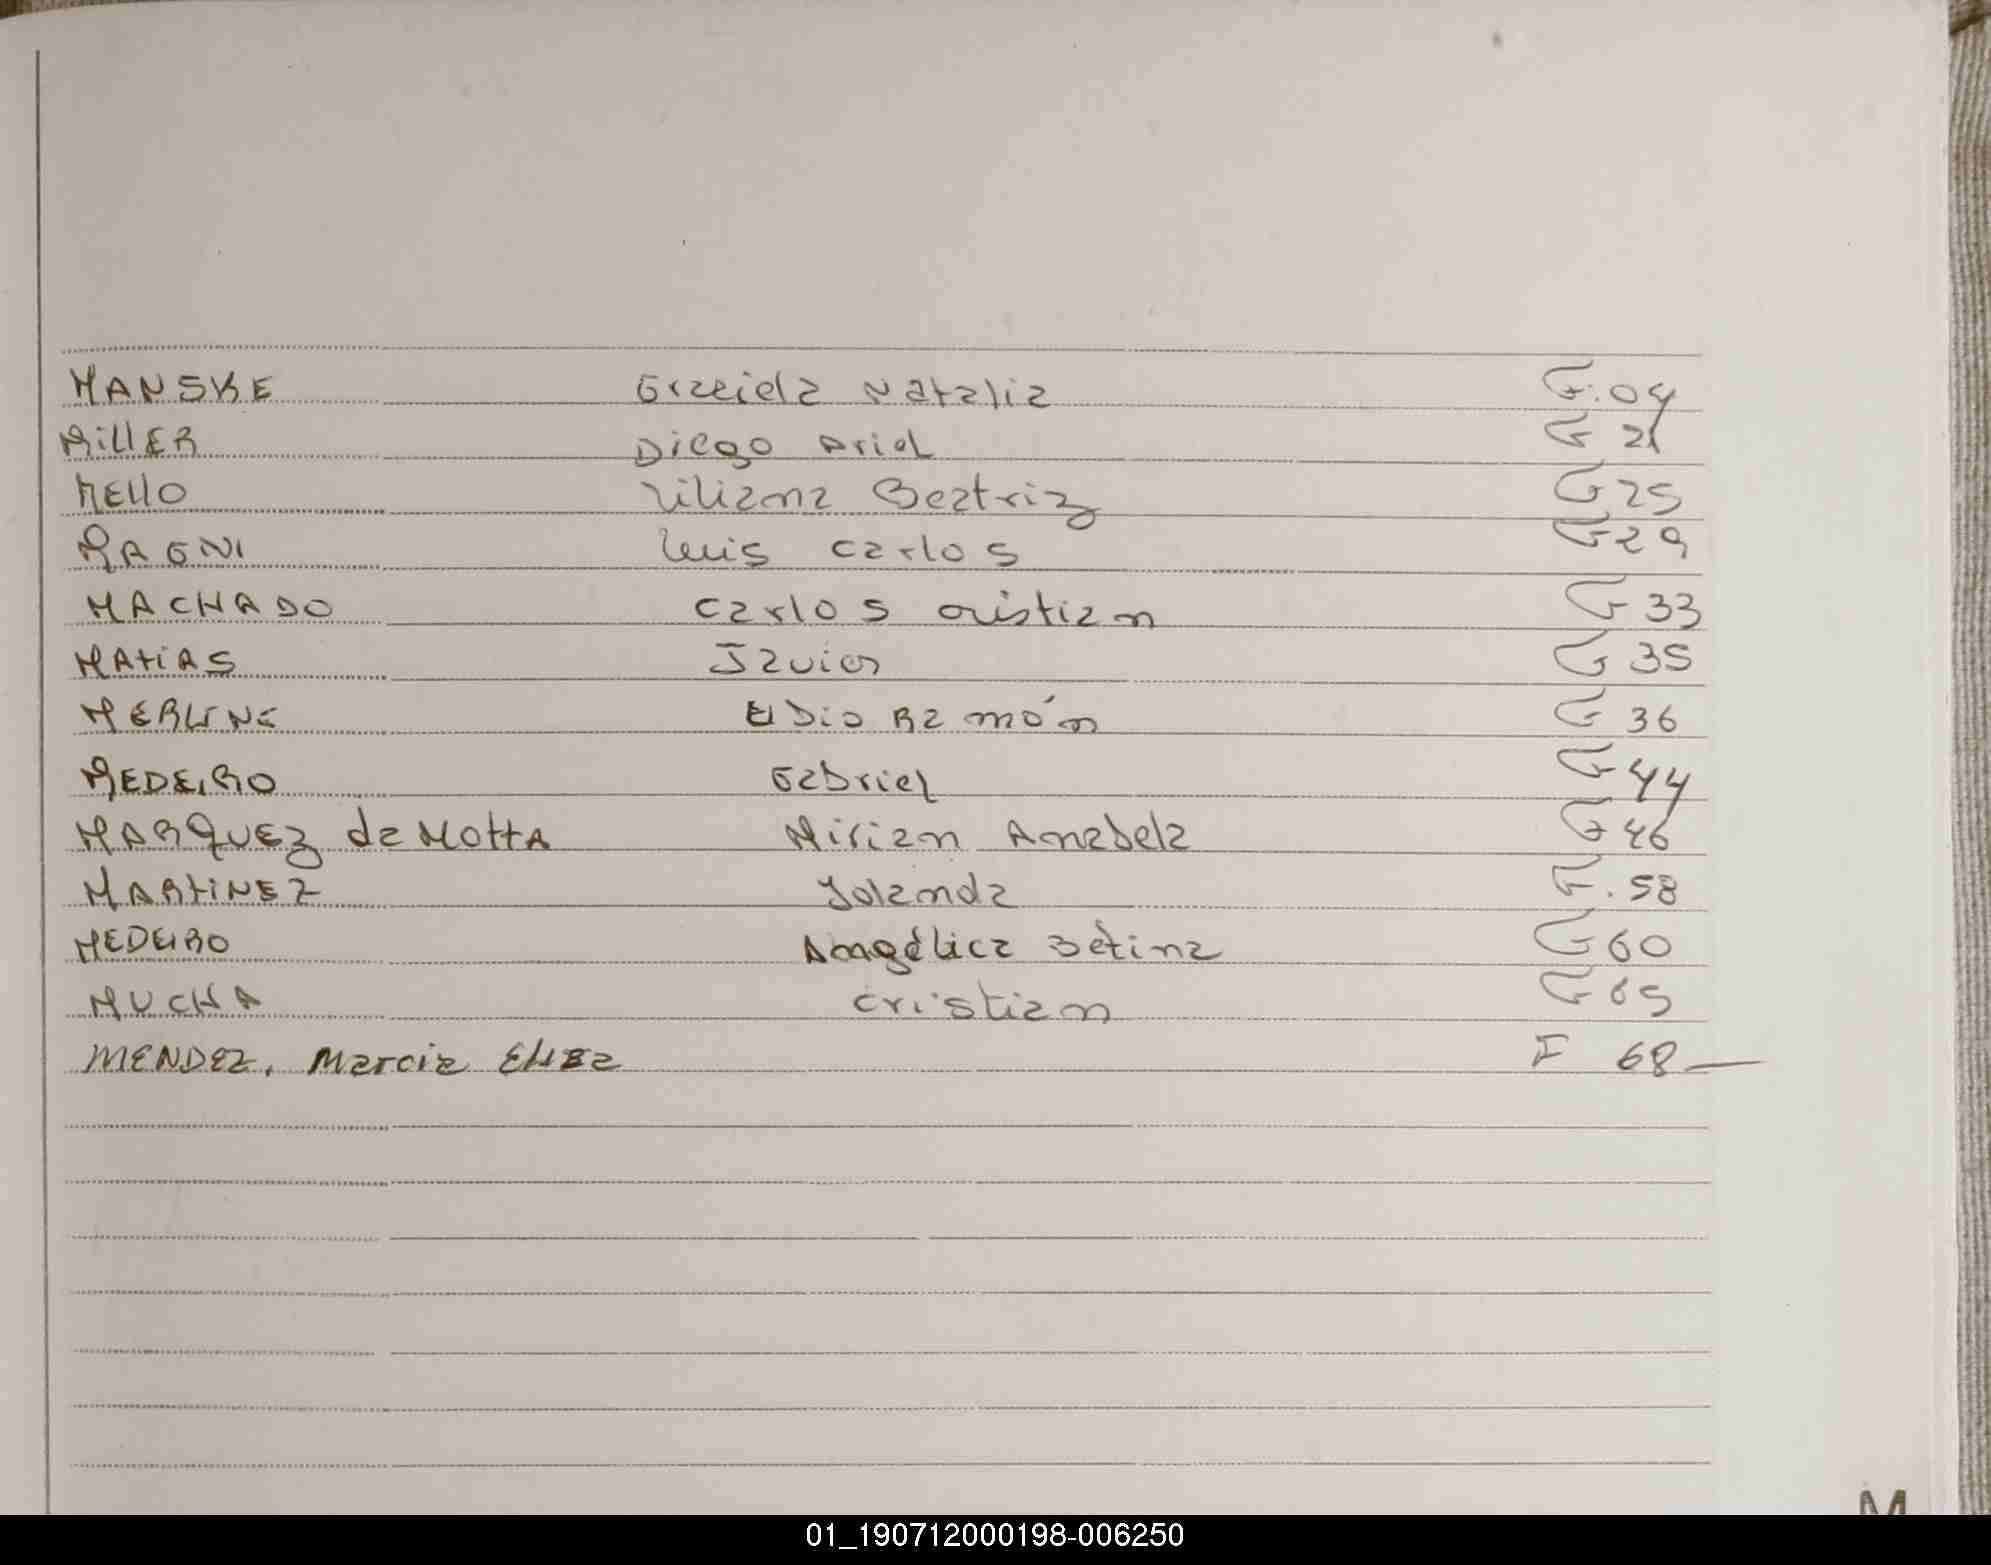 MANSKE Graciela Natalia F. 04
MILLER Diego Ariel F 21
MELLO Liliana Beatriz F 25
MAGNI Luis Carlos F 29
MACHADO Carlos Cristian F 33
MATIAS Javier F 35
MERLINE Eldio Ramón F 36
MEDEIRO Gabriel F 44
MARQUEZ da MOTTA Mirian Anabela F 46
MARTINEZ Yolanda F. 58
MEDEIRO Angélica Betina F 60
MUCHA Cristian F 65
MENDEZ, Marcia Elisa F 68 —
M
01_190712000198-006250